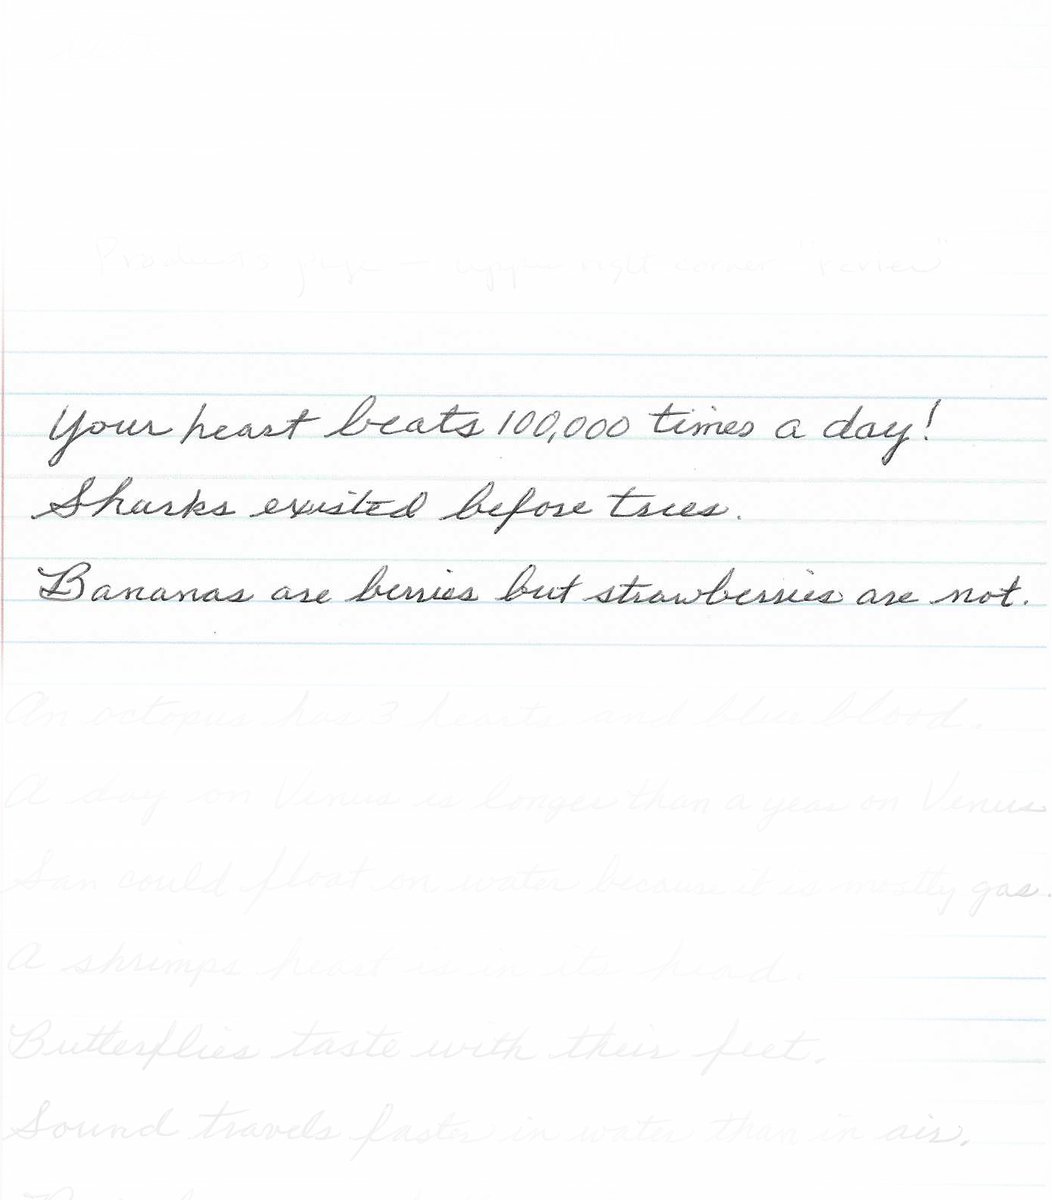 Products page - upper right corner "review"
Your heart beats 100,000 times a day!
Sharks existed before trees.
Bananas are berries but strawberries are not.
An octopus has 3 hearts and blue blood.
A day on Venus is longer than a year on Venus
San could float on water because it is mostly gas.
A shrimps heart is in its head.
Butterflies taste with their feet.
Sound travels faster in water than in air.